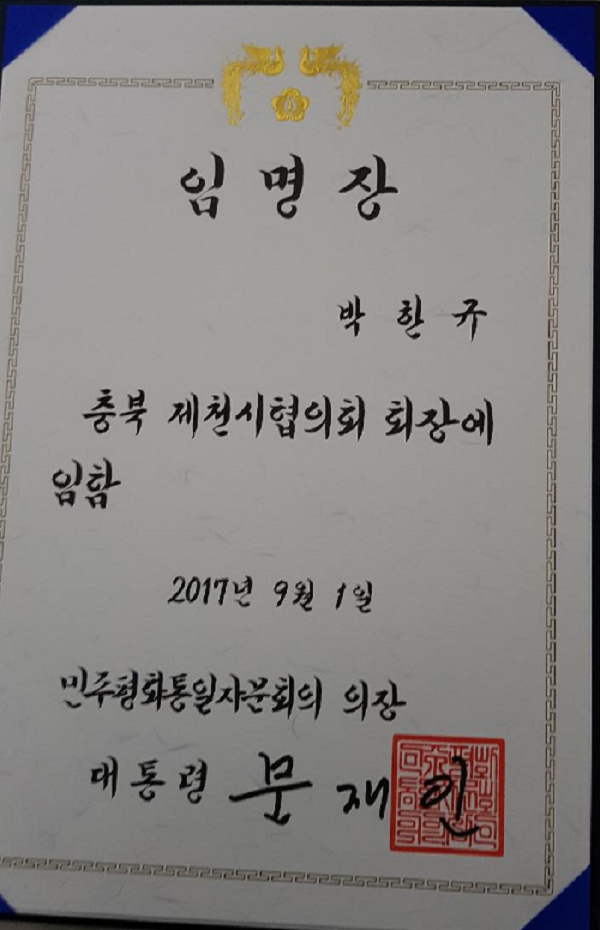 임명장
박한규
충북 제천시협의회 회장에
임함
2017년 9월 1일
민주평화통일자문회의 의장
대통령 문재인